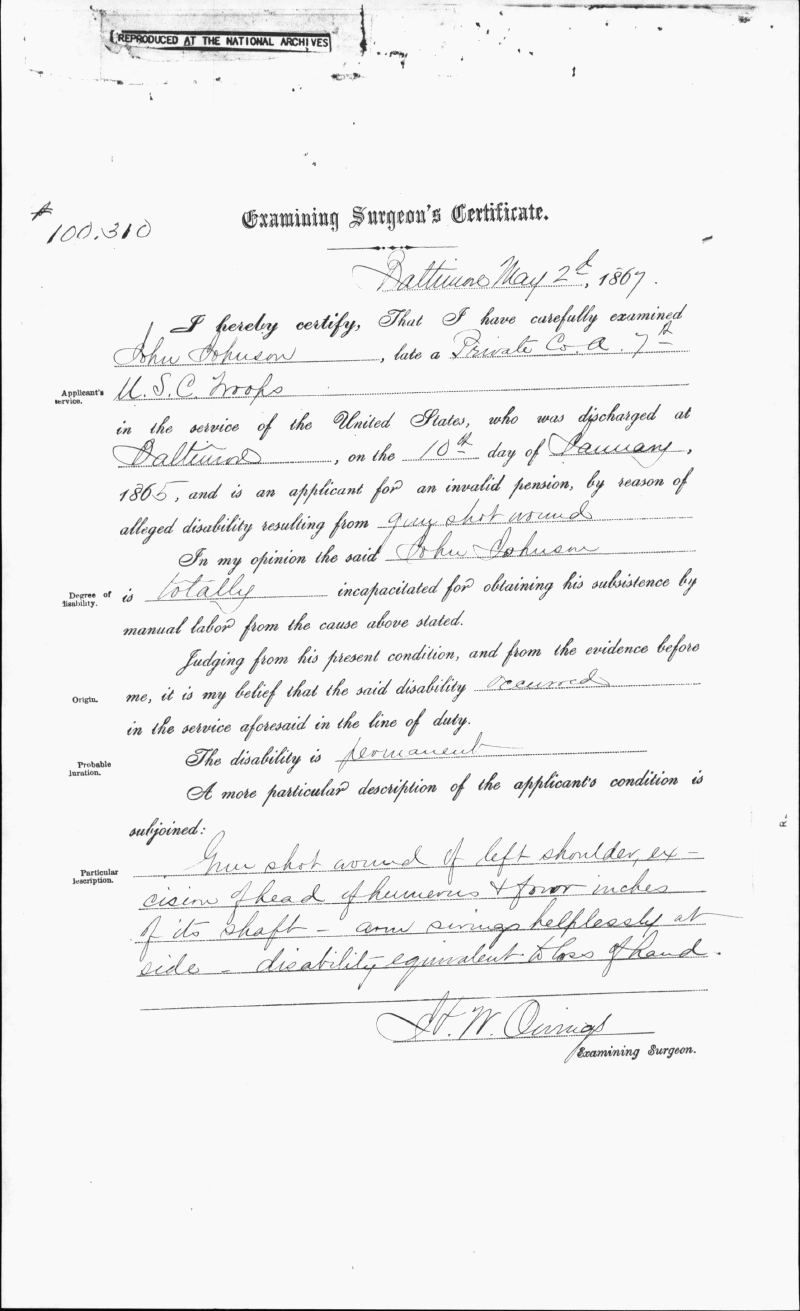 REPRODUCED AT THE NATIONAL ARCHIVES
# 100.310
Examining Surgeon's Certificate.
Baltimore May 2d, 1867.
I hereby certify, That I have carefully examined
John Johnson, late a Private Co. A. 7th
Applicant's service.
U.S.C. Troops
in the service of the United States, who was discharged at
Baltimore, on the 10th day of January,
1865, and is an applicant for an invalid pension, by reason of
alleged disability resulting from gun shot wound
In my opinion the said John Johnson
Degree of disability.
is totally incapacitated for obtaining his subsistence by
manual labor from the cause above stated.
Judging from his present condition, and from the evidence before
Origin.
me, it is my belief that the said disability occurred
in the service aforesaid in the line of duty.
Probable duration.
The disability is permanent
A more particular description of the applicant's condition is
subjoined:
Particular description.
Gun shot wound of left shoulder, ex-
cision of head of humerus & four inches
of its shaft - arm swings helplessly at
side - disability equivalent to loss of hand.
H. W. Owings
Examining Surgeon.